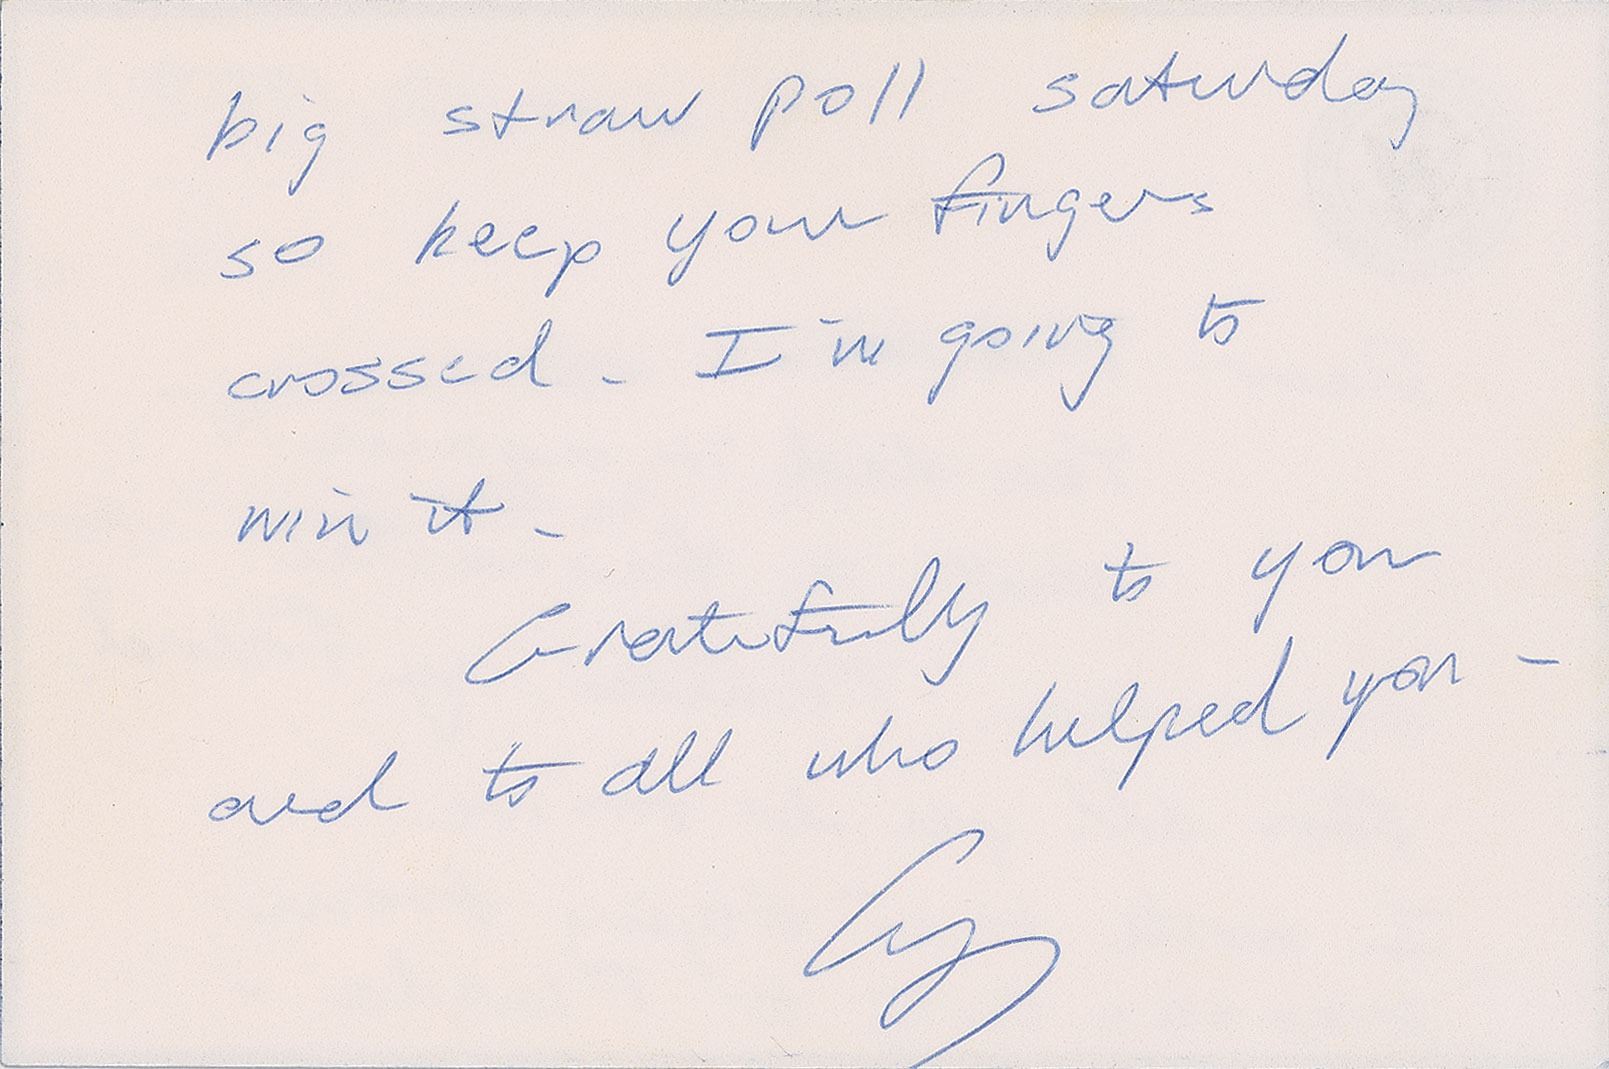 big straw poll saturday
so keep your fingers
crossed - I'm going to
win it -
Gratefully to you
and to all who helped you -